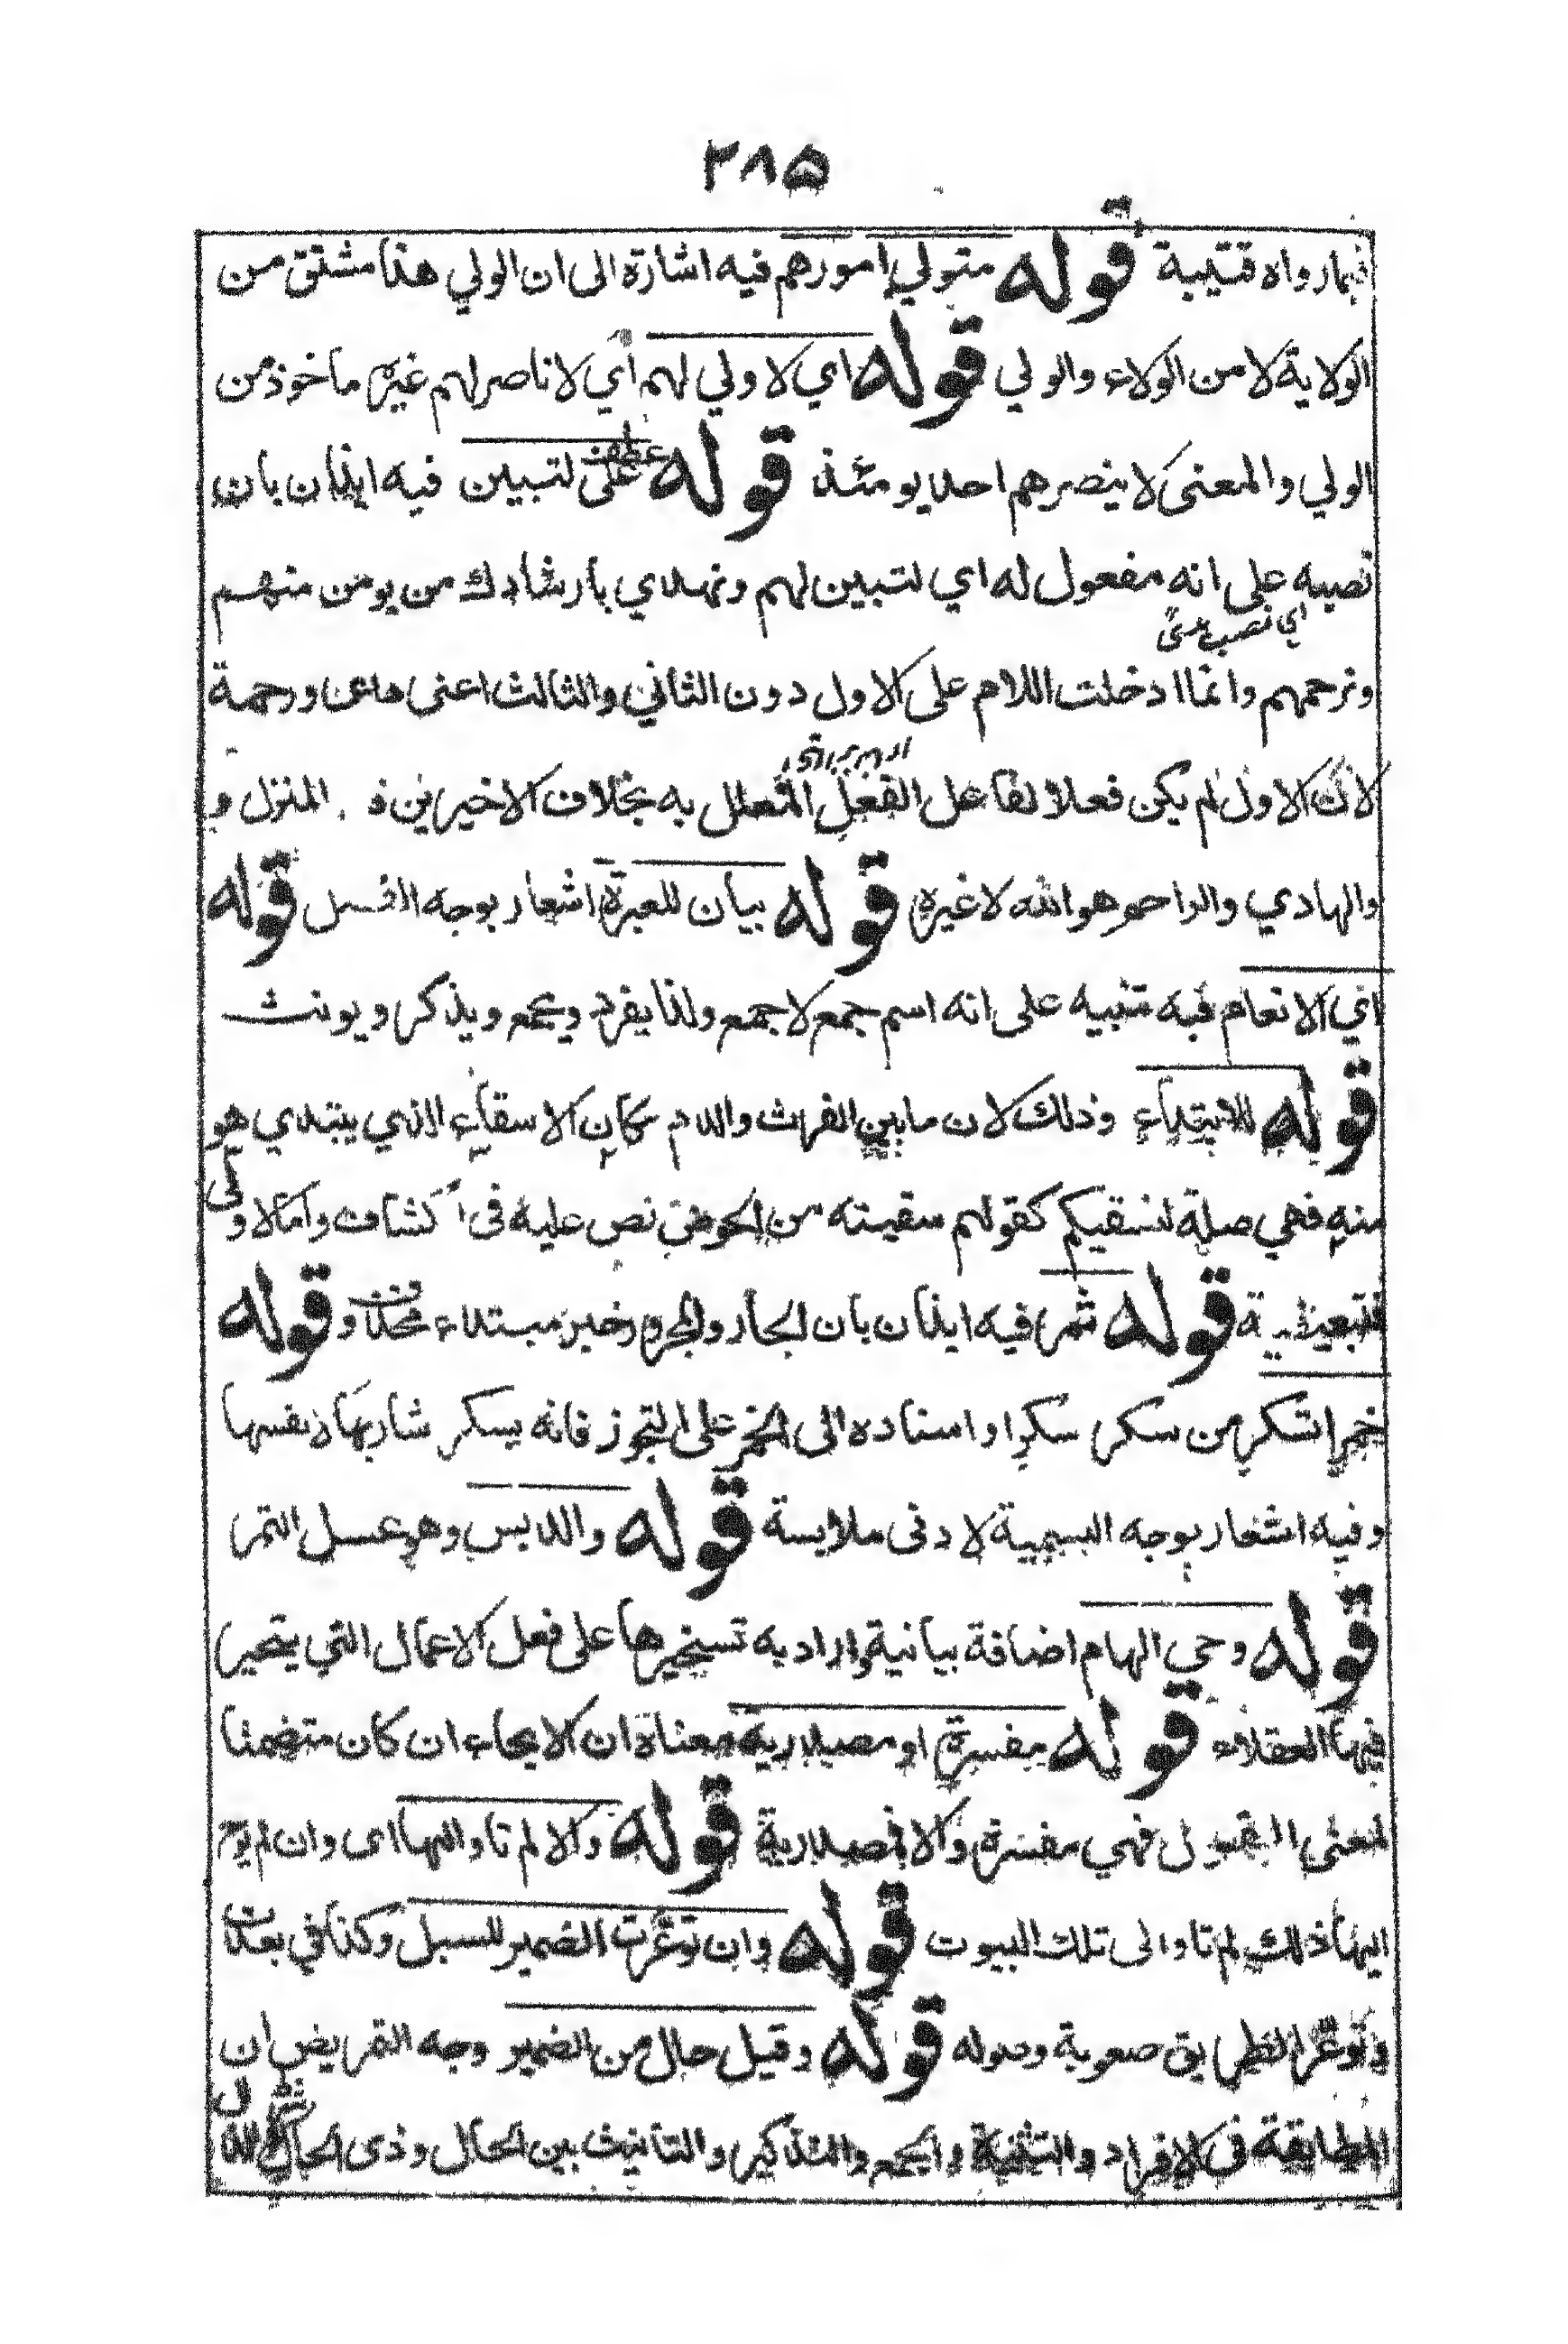 ٢٨٥
فيما رواه قتيبة قوله متولي امورهم فيه اشارة الى ان الولي هذا مشتق من
الولاية لا من الولاء والولي قوله اي لا ولي لهم أي لا ناصر لهم غيره ماخوذ من
الولي والمعنى لا ينصرهم احد يومئذ قوله عطف على لتبين فيه ايذان بان
نصبه على انه مفعول له اي لتبين لهم ونهدي بارشادك من يومن منهم
اي نصب هدى
ونرحمهم وانما ادخلت اللام على الاول دون الثاني والثالث اعنى هدى ورحمة
لان الاول لم يكن فعلا لفاعل الفعل المعلل به بخلاف الاخيرين المنزل و
والهادي والراحم هو الله لا غيره قوله بيان للعبرة اشعار بوجه الفصل قوله
اي الانعام فيه تنبيه على انه اسم جمع لا جمع ولذا يفرد ويجمع ويذكر ويونث
قوله للابتداء وذلك لان ما بين الفرث والدم مكان الاسقاء الذي يبتدي هو
منه فهي صلة لنسقيكم كقولهم سقيته من الحوض نص عليه فى الكشاف واما الاولى
فتبعيضية قوله ثمر فيه ايذان بان الجار والمجرور خبر مبتداء محذوف وقوله
خمرا تسكر من سكر سكرا واسناده الى الخمر على التجوز فانه يسكر شاربها لا نفسها
وفيه اشعار بوجه التسمية لادنى ملابسة قوله والدبس وهو عسل التمر
قوله وحي الهام اضافة بيانية واراد به تسخيرها على فعل الاعمال التي يتحير
فيها العقلاء قوله مفسرة او مصدرية معناه ان الايحاء ان كان متضمنا
لمعنى القول فهي مفسرة والا فمصدرية قوله والا لم تاو اليها اى وان لم يوح
اليها ذلك لم تاو الى تلك البيوت قوله وان توعرت الضمير للسبل وكذا في بعدت
وتوعر الطريق صعوبة وصوله قوله وقيل حال من الضمير وجه التمريض ان
المطابقة فى الافراد والتثنية والجمع والتذكير والتانيث بين الحال وذى الحال